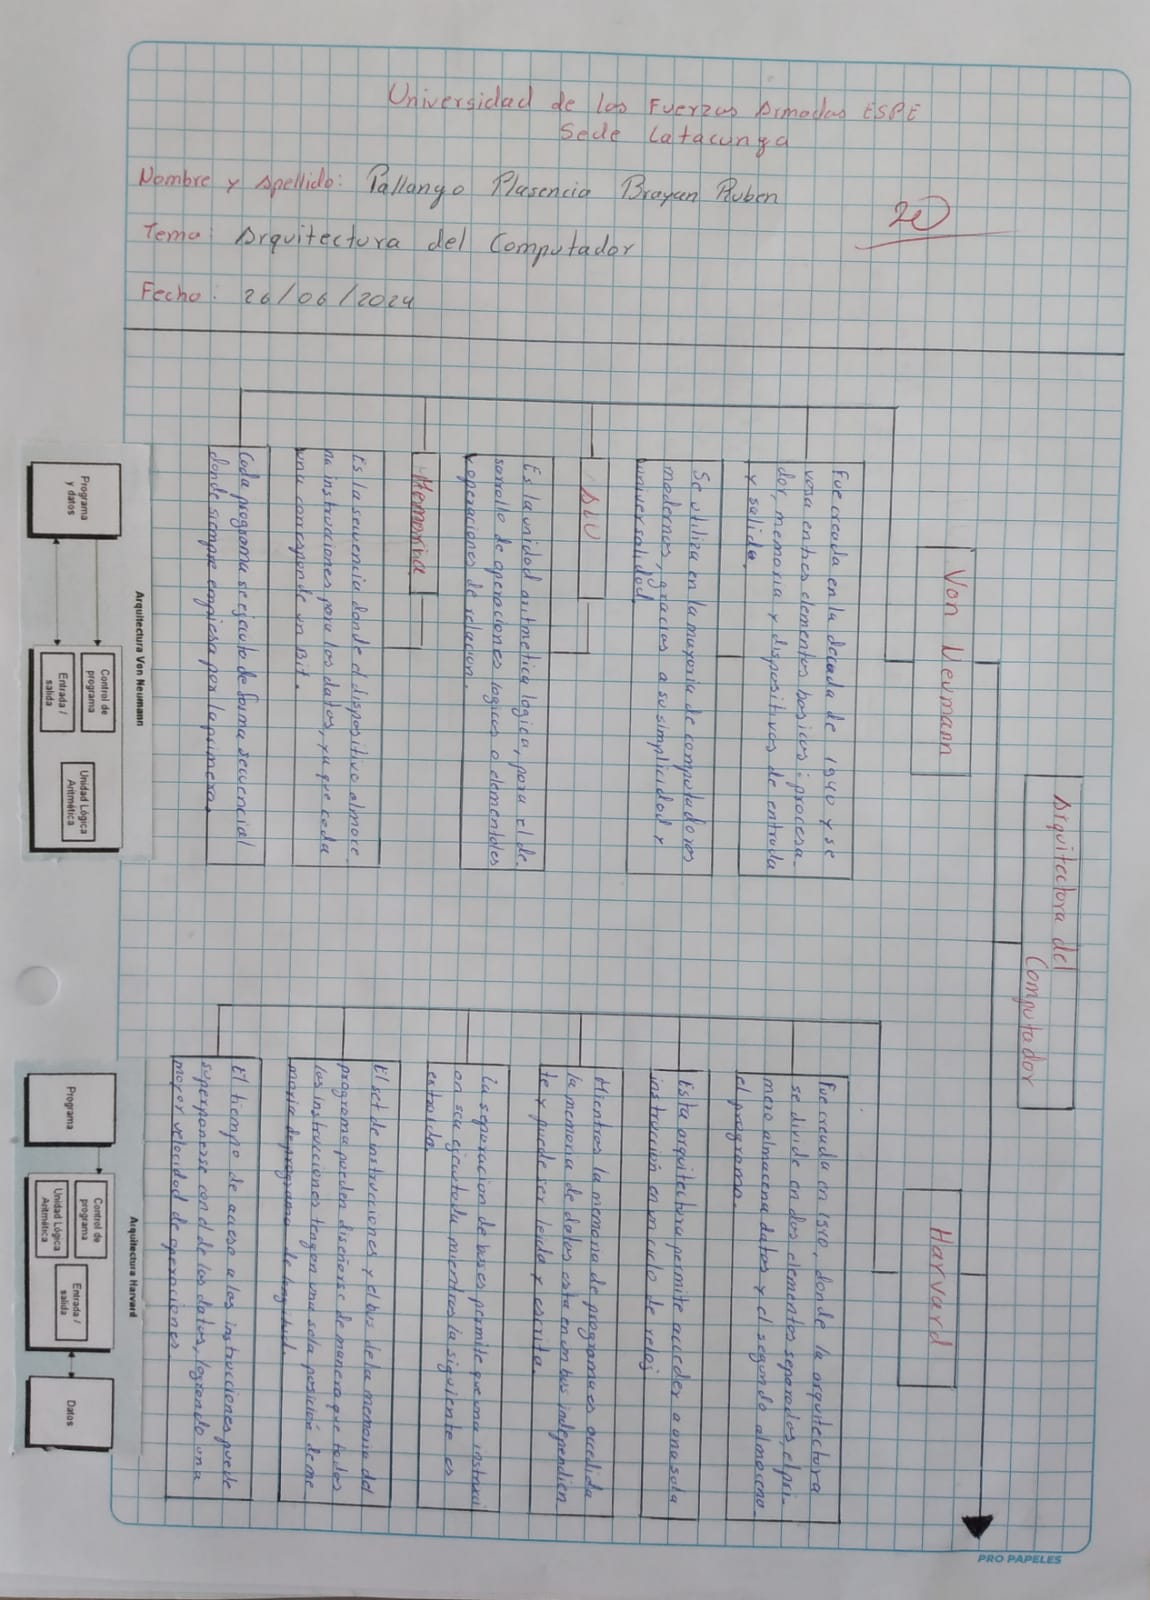 Universidad de las Fuerzas Armadas ESPE
Sede Latacunga
Nombre y Apellido: Pallango Plasencia Brayan Ruben
20
Tema: Arquitectura del Computador
Fecha: 26/06/2024
Arquitectura del
Computador
Von Neumann
Fue creada en la decada de 1940 y se
vasa en tres elementos basicos: procesa-
dor, memoria y dispositivos de entrada
y salida.
Se utiliza en la mayoria de computadoras
modernas, gracias a su simplicidad y
universalidad
ALU
Es la unidad aritmetica logica, para el de-
sarrollo de operaciones logicas o elementales
y operaciones de relacion.
Memoria
Es la secuencia donde el dispositivo almace
na instrucciones para los datos, ya que cada
una corresponde un Bit.
Cada programa se ejecuta de forma secuencial
donde siempre empiesa por la primera.
Arquitectura Von Neumann
Programa
y datos
Control de
programa
Entrada /
salida
Unidad Lógica
Aritmética
Harvard
Fue creada en 1940, donde la arquitectura
se divide en dos elementos separados, el pri-
mero almacena datos y el segundo almacena
el programa.
Esta arquitectura permite acceder a una sola
instrucción en un ciclo de reloj
Mientras la memoria de programa es accedida
la memoria de datos esta en un bus independien
te y puede ser leida y escrita.
La separacion de buses permite que una instrucci
on sea ejecutada mientras la siguiente es
extraida.
El set de instrucciones y el bus de la memoria del
programa pueden diseñarse de manera que todas
las instrucciones tengan una sola posición de me
moria de programa de longitud.
El tiempo de acceso a las instrucciones puede
superponerse con el de los datos, logrando una
mayor velocidad de operaciones.
Arquitectura Harvard
Programa
Control de
programa
Unidad Lógica
Aritmética
Entrada /
salida
Datos
PRO PAPELES